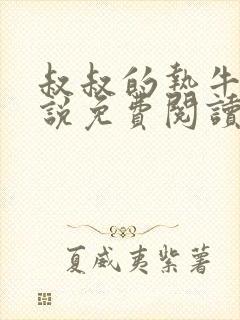 叔叔的熱牛
說免費閱讀
夏威夷紫薯